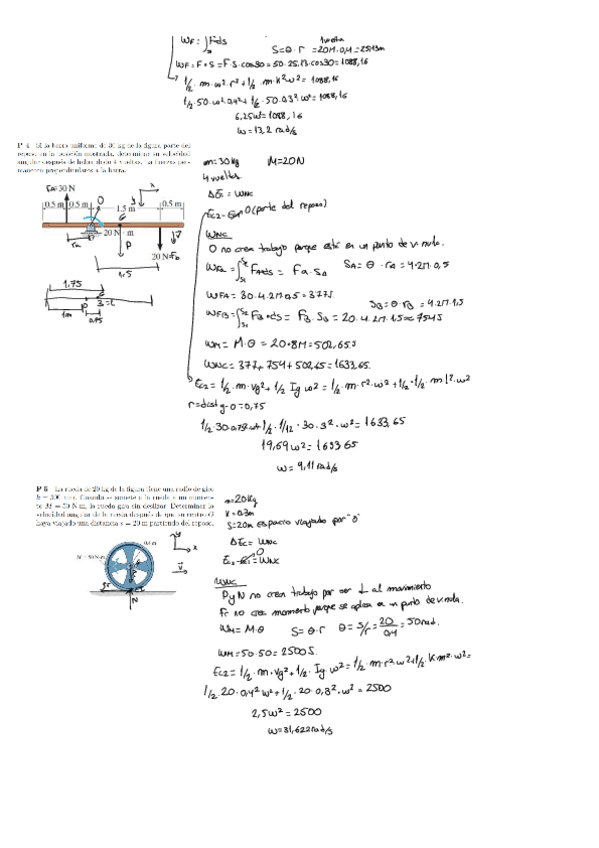 WF = ∫ F·ds
1 vuelta
S = θ · r = 20π · 0,4 = 25,13m
WF = F * S = F·S·cos30 = 50·25,13·cos30 = 1088,16
1/2 · m·ω²·r² + 1/2 · m·k²ω² = 1088,16
1/2·50·ω²·0,4² + 1/2·50·0,3² ω² = 1088,16
6,25ω² = 1088,16
ω = 13,2 rad/s
P 4 Si la barra uniforme de 30 kg de la figura parte del
reposo en la posición mostrada, determinar su velocidad
angular después de haber dado 4 vueltas. La fuerza per-
manece perpendicularmente a la barra.
m = 30 kg M = 20N
4 vueltas
ΔEc = WNC
(parte del reposo)
WNC
O no crea trabajo porque está en un punto de v nula.
WFA = ∫ FA·ds = FA · SA SA = θ · rA = 4·2π·0,5
WFA = 30·4·2π·0,5 = 377J
WFB = ∫ FB·ds = FB · SB = 20·4·2π·1,5 = 754J
SB = θ · rB = 4·2π·1,5
WM = M·θ = 20·8π = 502,65J
WNC = 377 + 754 + 502,65 = 1633,65.
Ec2 = 1/2 · m · vg² + 1/2 Ig ω² = 1/2 · m · r² · ω² + 1/2 · 1/12 · m · l² · ω²
r = dist g-o = 0,75
19,69 ω² = 1633,65
ω = 9,11 rad/s
FA=30 N
0.5 m 0.5 m 1.5 m 0.5 m
20 N · m
20 N=FB
rA
P
1,5
1.75
1m
0,75
P 5 La rueda de 20 kg de la figura tiene una radio de giro
k = 300 mm. Cuando se somete a la rueda a un momen-
to M = 50 N m, la rueda gira sin deslizar. Determinar la
velocidad angular de la rueda después de que su centro O
haya viajado una distancia s = 20 m partiendo del reposo.
m = 20 Kg
K = 0.3m
S = 20m espacio viajado por "O"
ΔEc = WNC
Ec2 - Ec1 = WNC
WNC
P y N no crea trabajo por ser ⊥ al movimiento
Fr no crea momento porque se aplica en un punto de v nula.
WM = M·θ S = θ · r θ = S/r = 20/0,4 = 50 rad.
WM = 50 · 50 = 2500 J.
Ec2 = 1/2 · m · vg² + 1/2 · Ig ω² = 1/2 · m · r² ω² + 1/2 · k · m² · ω² =
1/2 · 20 · 0,4² ω² + 1/2 · 20 · 0,3² · ω² = 2500
2,5 ω² = 2500
ω = 31,622 rad/s
M = 50 N·m
0.4 m
y
x
v
Fr
N